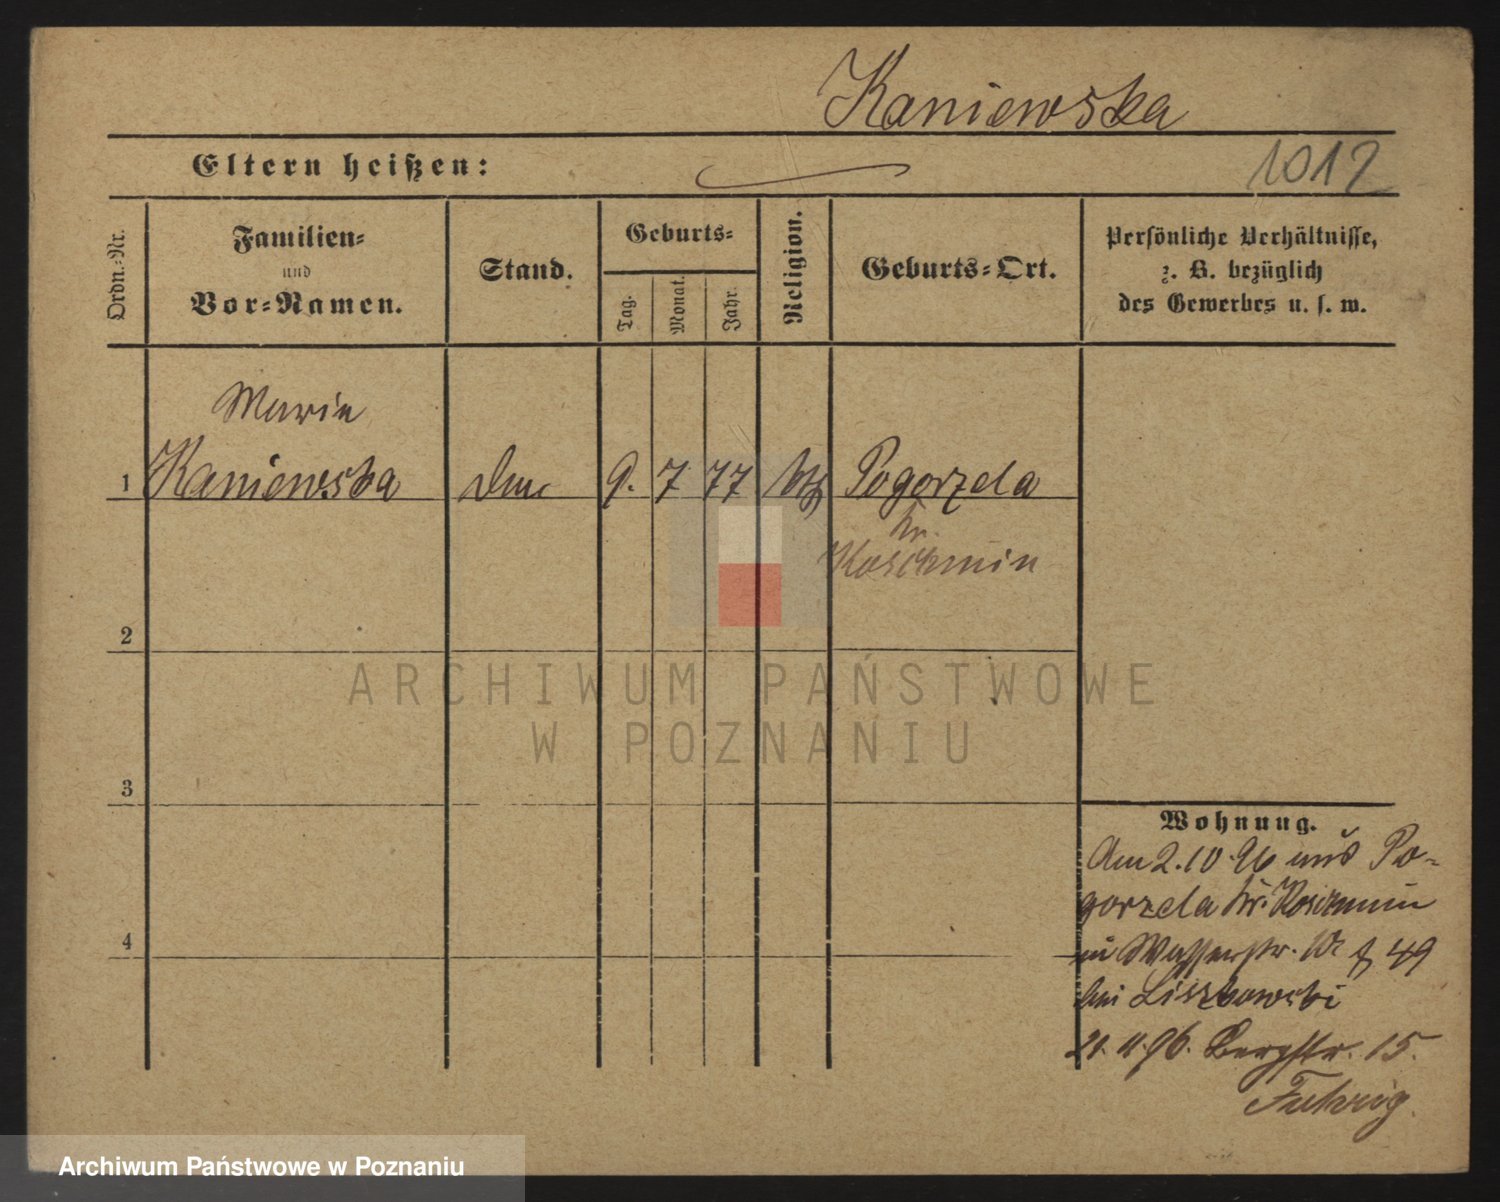 Kaniewska
Eltern heißen:
1012
Ordn.-Nr.
Familien-
und
Vor-Namen.
Stand.
Geburts-
Tag.
Monat.
Jahr.
Religion.
Geburts-Ort.
Persönliche Verhältnisse,
z. B. bezüglich
des Gewerbes u. s. w.
Marie
1 Kaniewska 9. 7 77 kth Pogorzela
Kr.
Koschmin
2
ARCHIWUM PAŃSTWOWE
W POZNANIU
3
Wohnung.
Am 2.10.96 aus Po-
gorzela Kr. Koschmin
Wasserstr. 49
bei Liszkowski
21. 11. 96. Bergstr. 15.
4
Archiwum Państwowe w Poznaniu